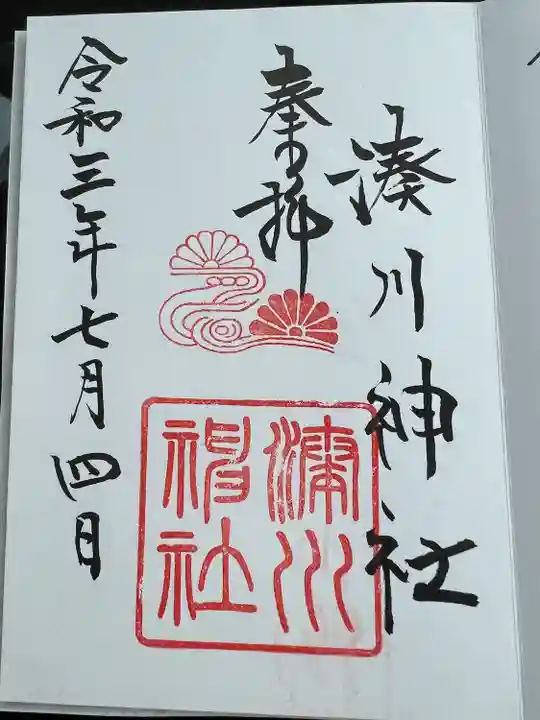 奉拝
湊川神社
湊川
神社
令和三年七月四日